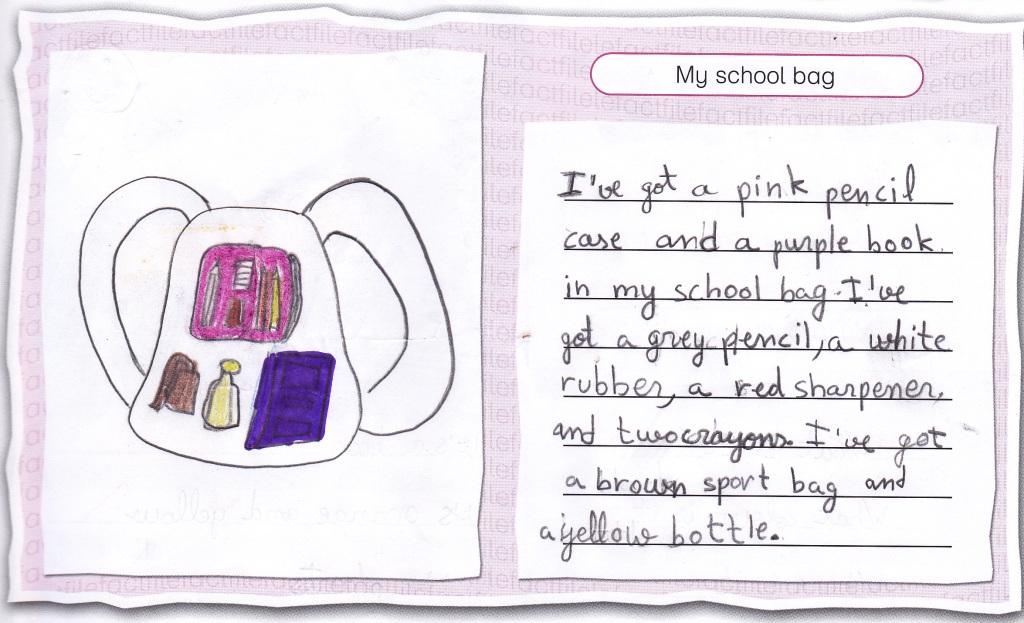 My school bag
I've got a pink pencil
case and a purple book.
in my school bag. I've
got a grey pencil, a white
rubber, a red sharpener,
and two crayons. I've got
a brown sport bag and
a yellow bottle.